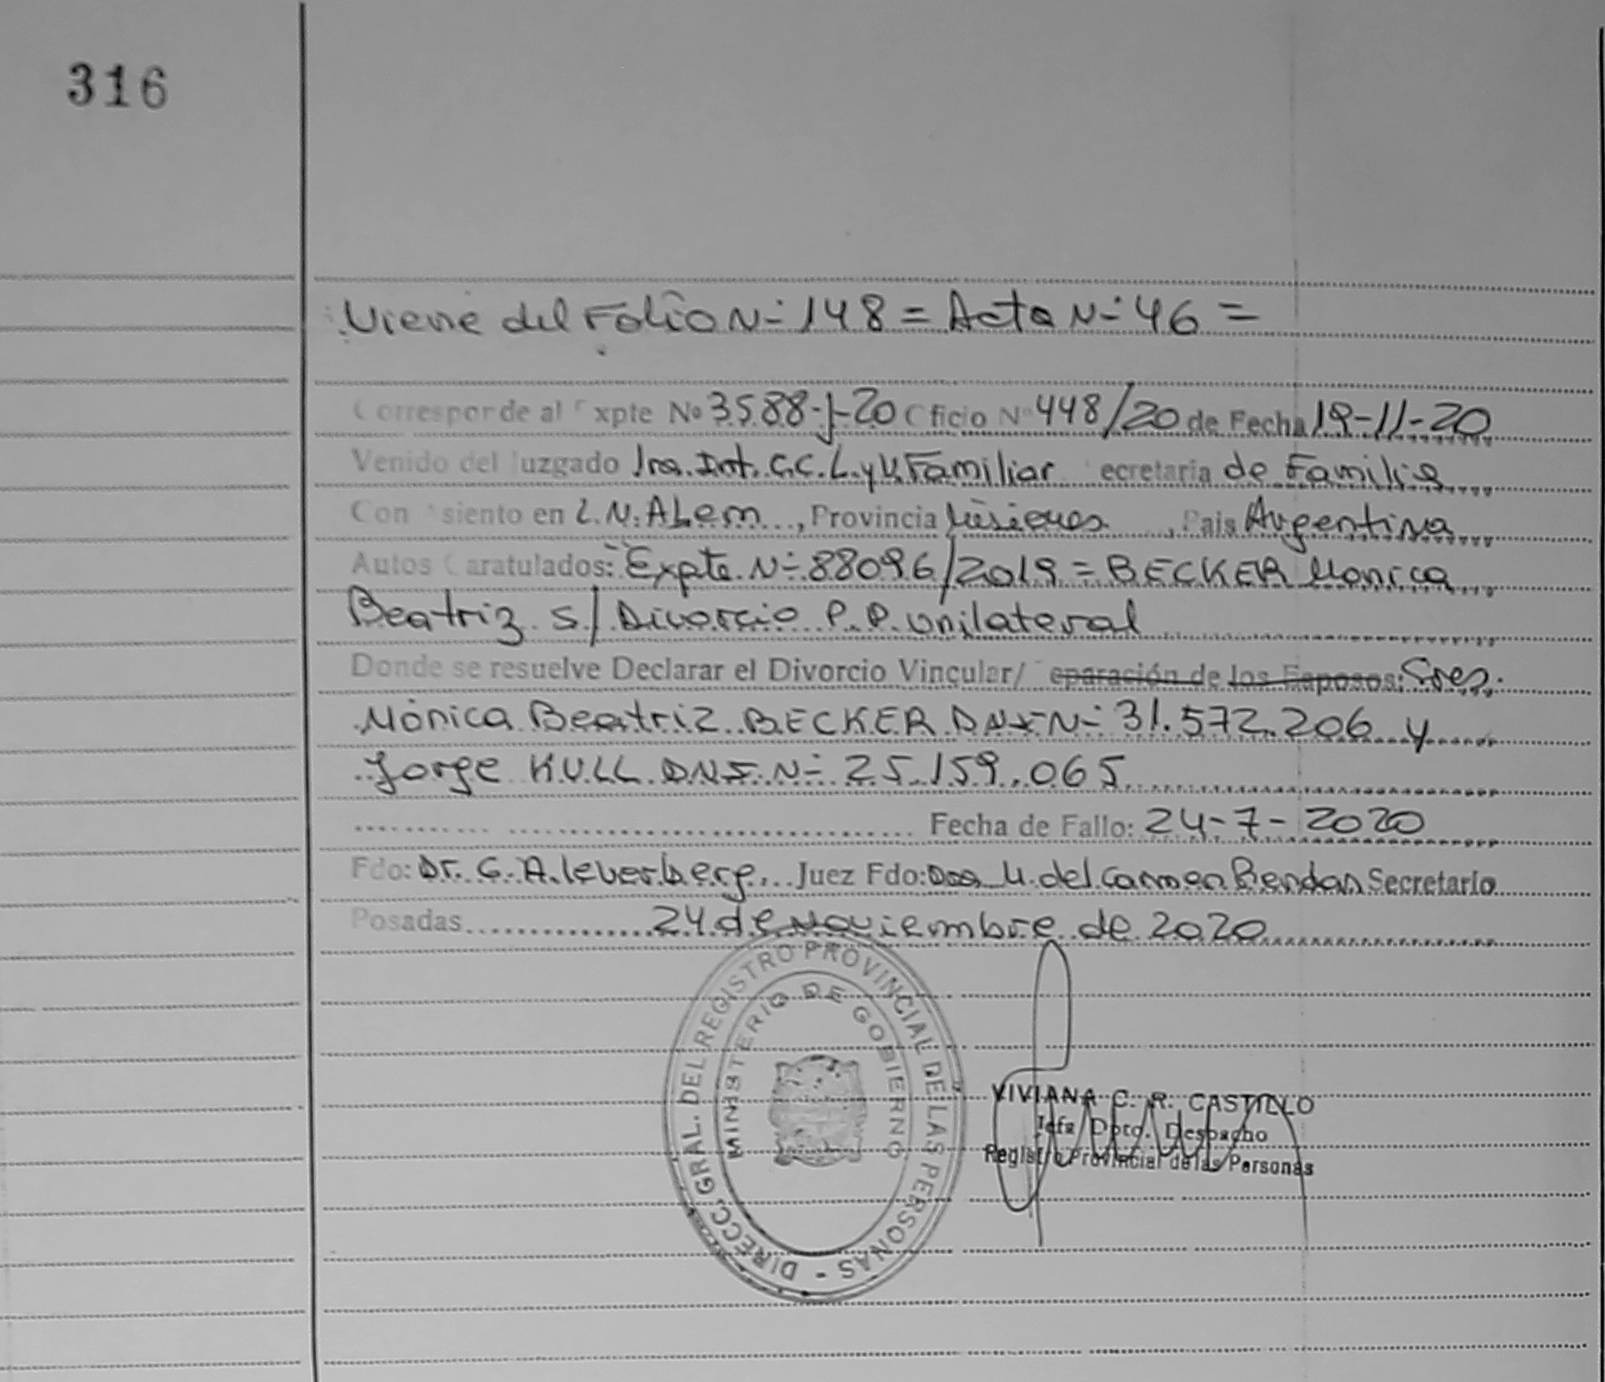 316
Viene del Folio N- 148 = Acta N- 46 =
Corresponde al Expte Nº 3588-J-20 Oficio Nº 448/20 de Fecha 19-11-20
Venido del Juzgado 1ra. Int. C.C.L. y V. Familiar Secretaria de Familia
Con Asiento en L.N. ALem, Provincia Misiones, Pais Argentina
Autos Caratulados: "Expte. N- 88096/2019 = BECKER Monica
Beatriz S/ Divorcio P.P. Unilateral
Donde se resuelve Declarar el Divorcio Vincular/ Separación de los Esposos: Sres.
Mónica Beatriz BECKER DNI N- 31.572.206 y
Jorge KULL DNI N- 25.159.065
Fecha de Fallo: 24-7-2020
Fdo: Dr. G. A. Leverberg, Juez Fdo: Dra M. del Carmen Secretario
Posadas 24 de Noviembre de 2020
DIRECC. GRAL. DEL REGISTRO PROVINCIAL DE LAS PERSONAS -
MINISTERIO DE GOBIERNO
VIVIANA C. R. CASTILLO
Jefa Dpto. Despacho
Registro Provincial de las Personas